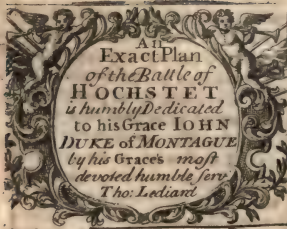 An
Exact Plan
of the Battle of
HOCHSTET
is humbly Dedicated
to his Grace IOHN
DUKE of MONTAGUE
by his Grace's most
devoted humble serv.
Tho: Lediard